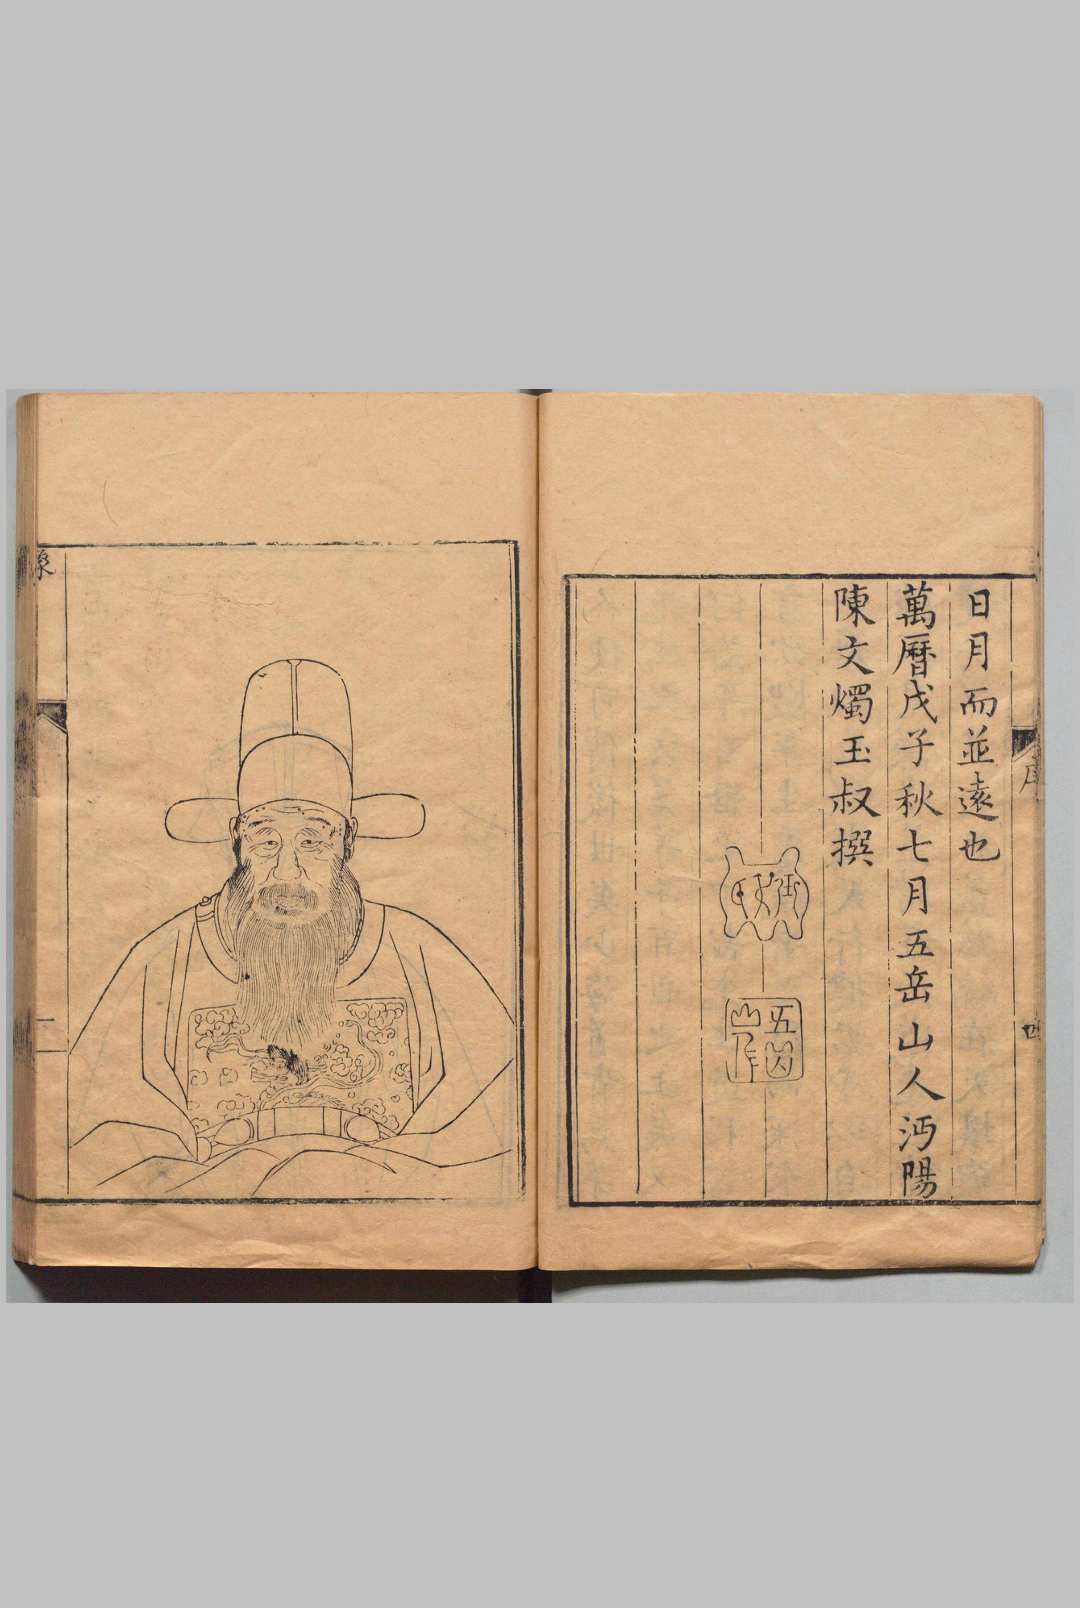 日月而並遠也
萬曆戊子秋七月五岳山人沔陽
陳文燭玉叔撰
玉叔
五岳山人
序
四
像
二